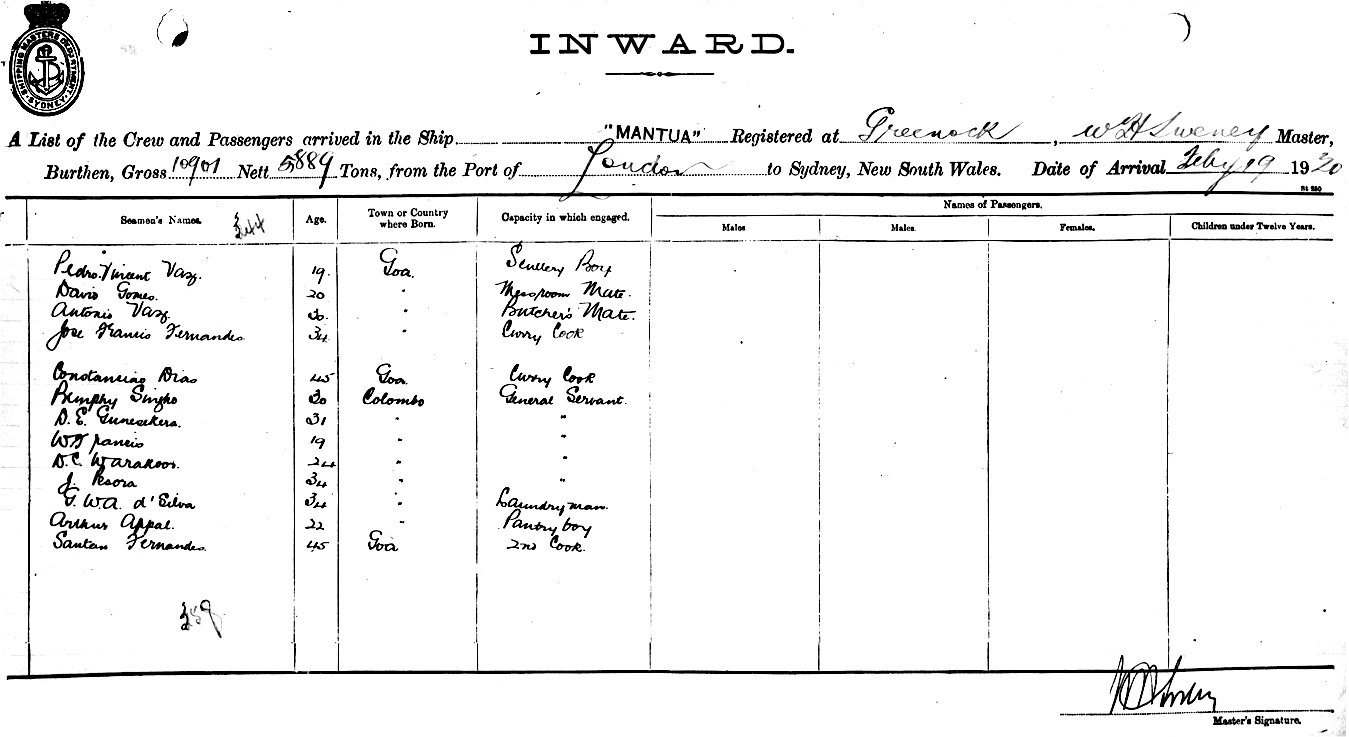 SHIPPING MASTERS DEPARTMENT SYDNEY
INWARD.
A List of the Crew and Passengers arrived in the Ship "MANTUA" Registered at Greenock, W H Sweney Master,
Burthen, Gross 10901 Nett 5889 Tons, from the Port of London to Sydney, New South Wales. Date of Arrival Feby 19 1920
Seamen's Names. Age. Town or Country where Born. Capacity in which engaged. Names of Passengers.
Males Males. Females. Children under Twelve Years.
244
Pedro Vincent Vaz. 19. Goa. Scullery Boy
David Gomes. 20 " Messroom Mate.
Antonio Vaz 30. " Butcher's Mate.
Jose Francis Fernandes 34 " Curry Cook
Constancias Dias 45 Goa Curry Cook
Singho 30 Colombo General Servant.
D. E. Gunesekera. 31 " "
W Francis 19 " "
D.C. Warakoos. 24 " "
J. 34 " "
G. W.A. d'Silva 34 " Laundryman.
Arthur Appal. 22 " Pantry boy
Santan Fernandes. 45 Goa 2nd Cook.
Master's Signature.